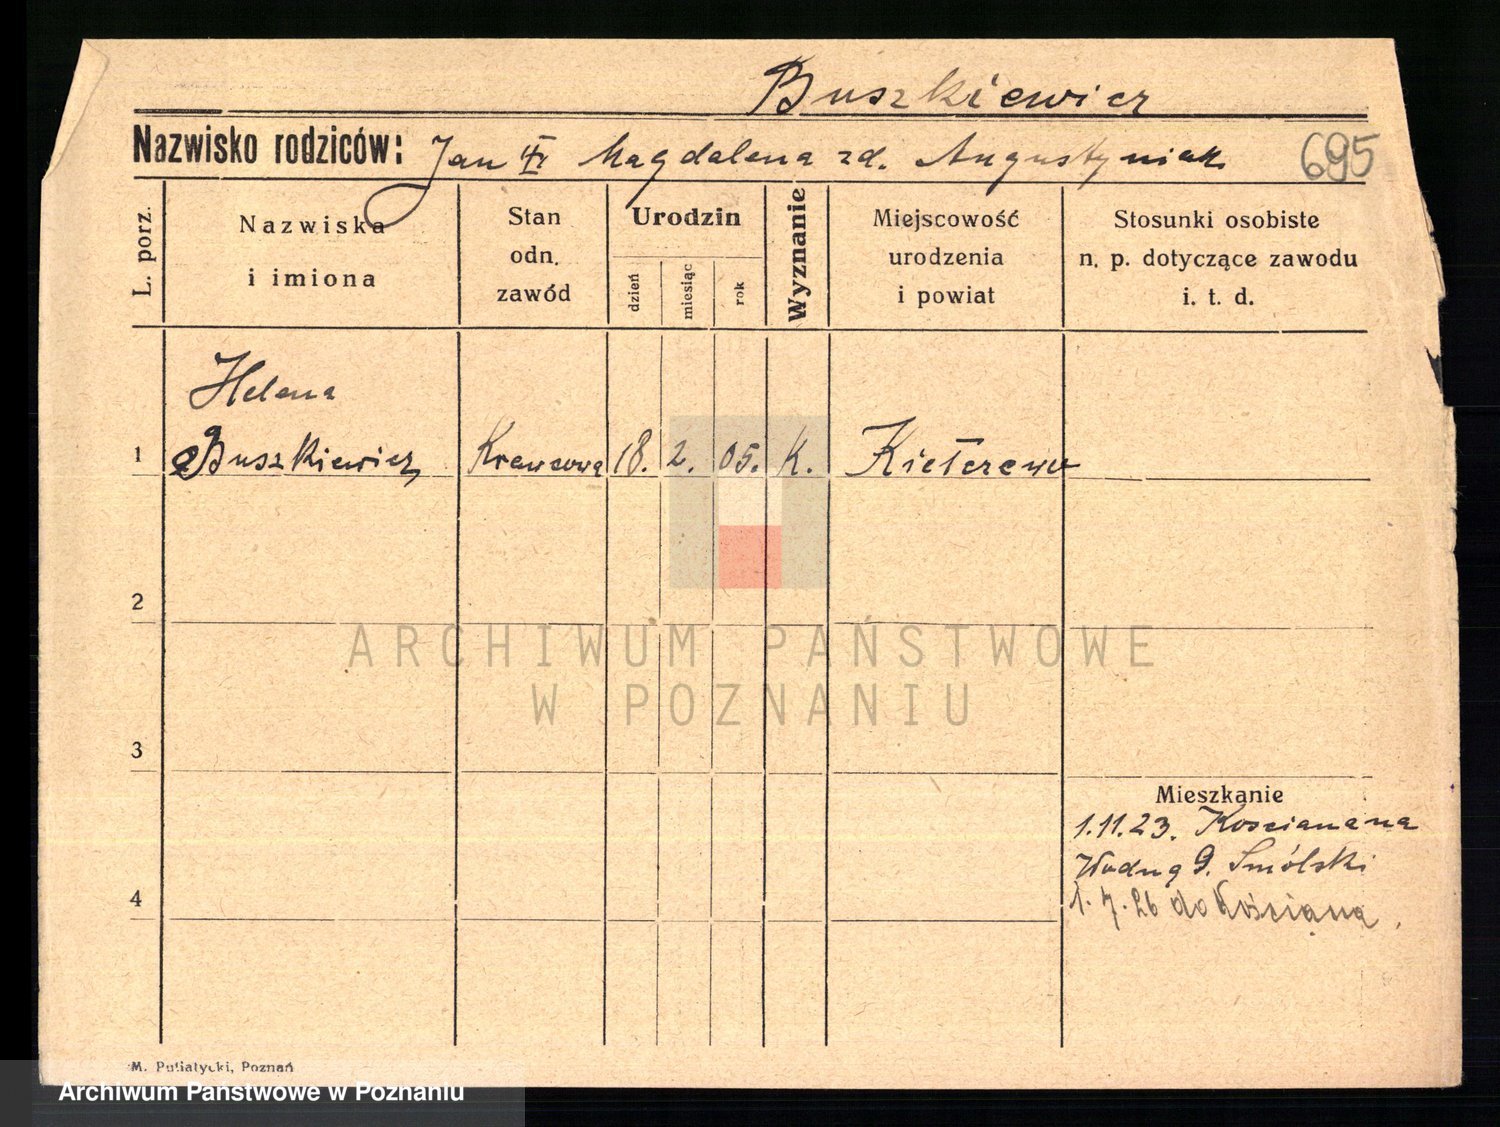 Buszkiewicz
Nazwisko rodziców: Jan Magdalena zd. Augustyniak 695
L. porz.
Nazwiska
i imiona
Stan
odn.
zawód
Urodzin
dzień
miesiąc
rok
Wyznanie
Miejscowość
urodzenia
i powiat
Stosunki osobiste
n. p. dotyczące zawodu
i. t. d.
Helena
1 Buszkiewicz Krawcowa 18. 2. 05. K. Kiełczewo
2
ARCHIWUM PAŃSTWOWE
W POZNANIU
3
Mieszkanie
1.11.23. Kosciana na
Smólski
4
1.7.26 do Kościana
M. Putiatycki, Poznań
Archiwum Państwowe w Poznaniu